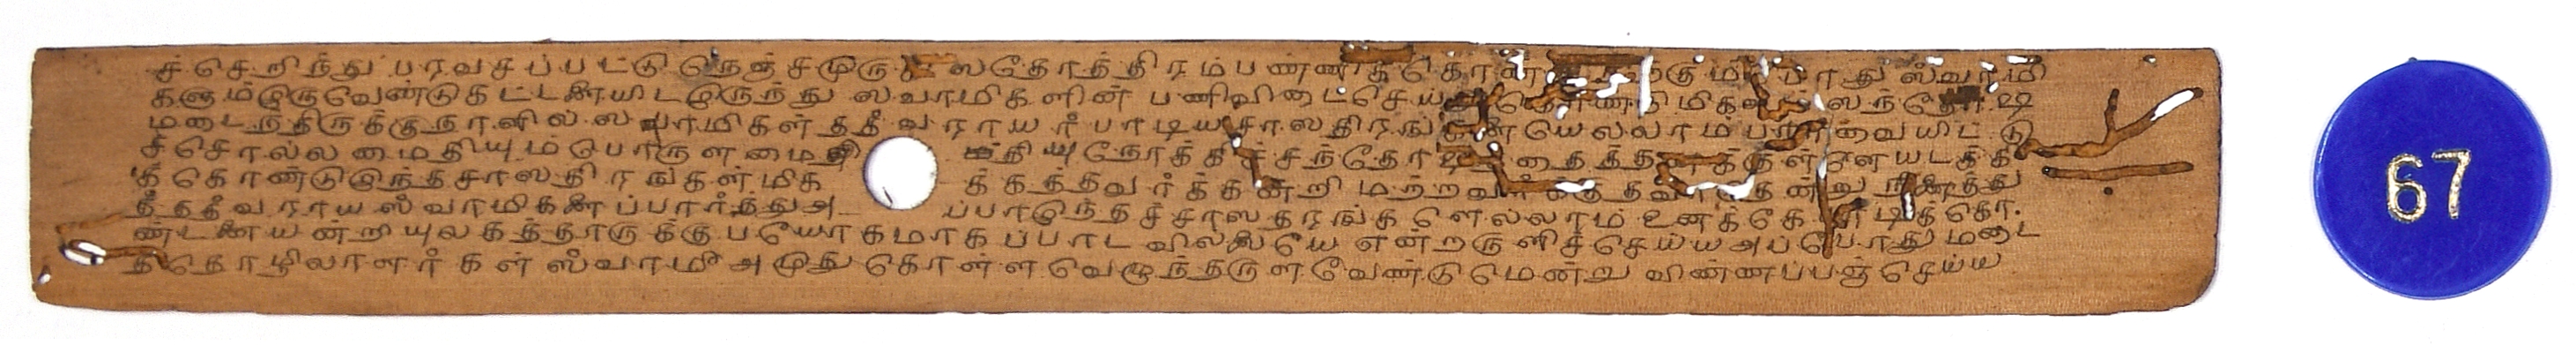 ச்செறிந்து பரவசப்பட்டு நெஞ்சமுருகி ஸதோத்திரம்பண்ணிக்கொண்டிருக்கும்போது ஸ்வாமி
களும்ஒருவேண்டுகட்டளையிடஇருந்து ஸவாமிகளின் பணிவிடைசெய்துகொண்டுமிகவும் ஸந்தோஷ
மடைந்திருக்குநாளில் ஸவாமிகள் தத்துவராயர் பாடிய சாஸதிரங்களையெல்லாம் பார்வையிட்டு
ச்சொல்லமைதியும்பொருளமைதி தியுநோக்கிச்சந்தோஷித்தைத்தனக்குள்ளேயடக்கி
க்கொண்டுஇந்தசாஸதிரங்கள்மிக க்கத்தவர்க்கன்றி மற்றவர்க்குதவாதென்று நினைத்து
த்தத்துவராயஸ்வாமிகளைப்பார்த்துஅ ப்பாஇந்தச்சாஸதரங்களெல்லாம் உனக்கே பாடிக்கொ
ண்டனையன்றியுலகத்தாருக்குபயோகமாகப்பாடவில்லையே என்றருளிச்செய்ய அப்போதுமடை
த்தொழிலாளர்கள் ஸ்வாமீ அமுதுகொள்ளவெழுந்தருளவேண்டுமென்று விண்ணப்பஞ்செய்ய
67